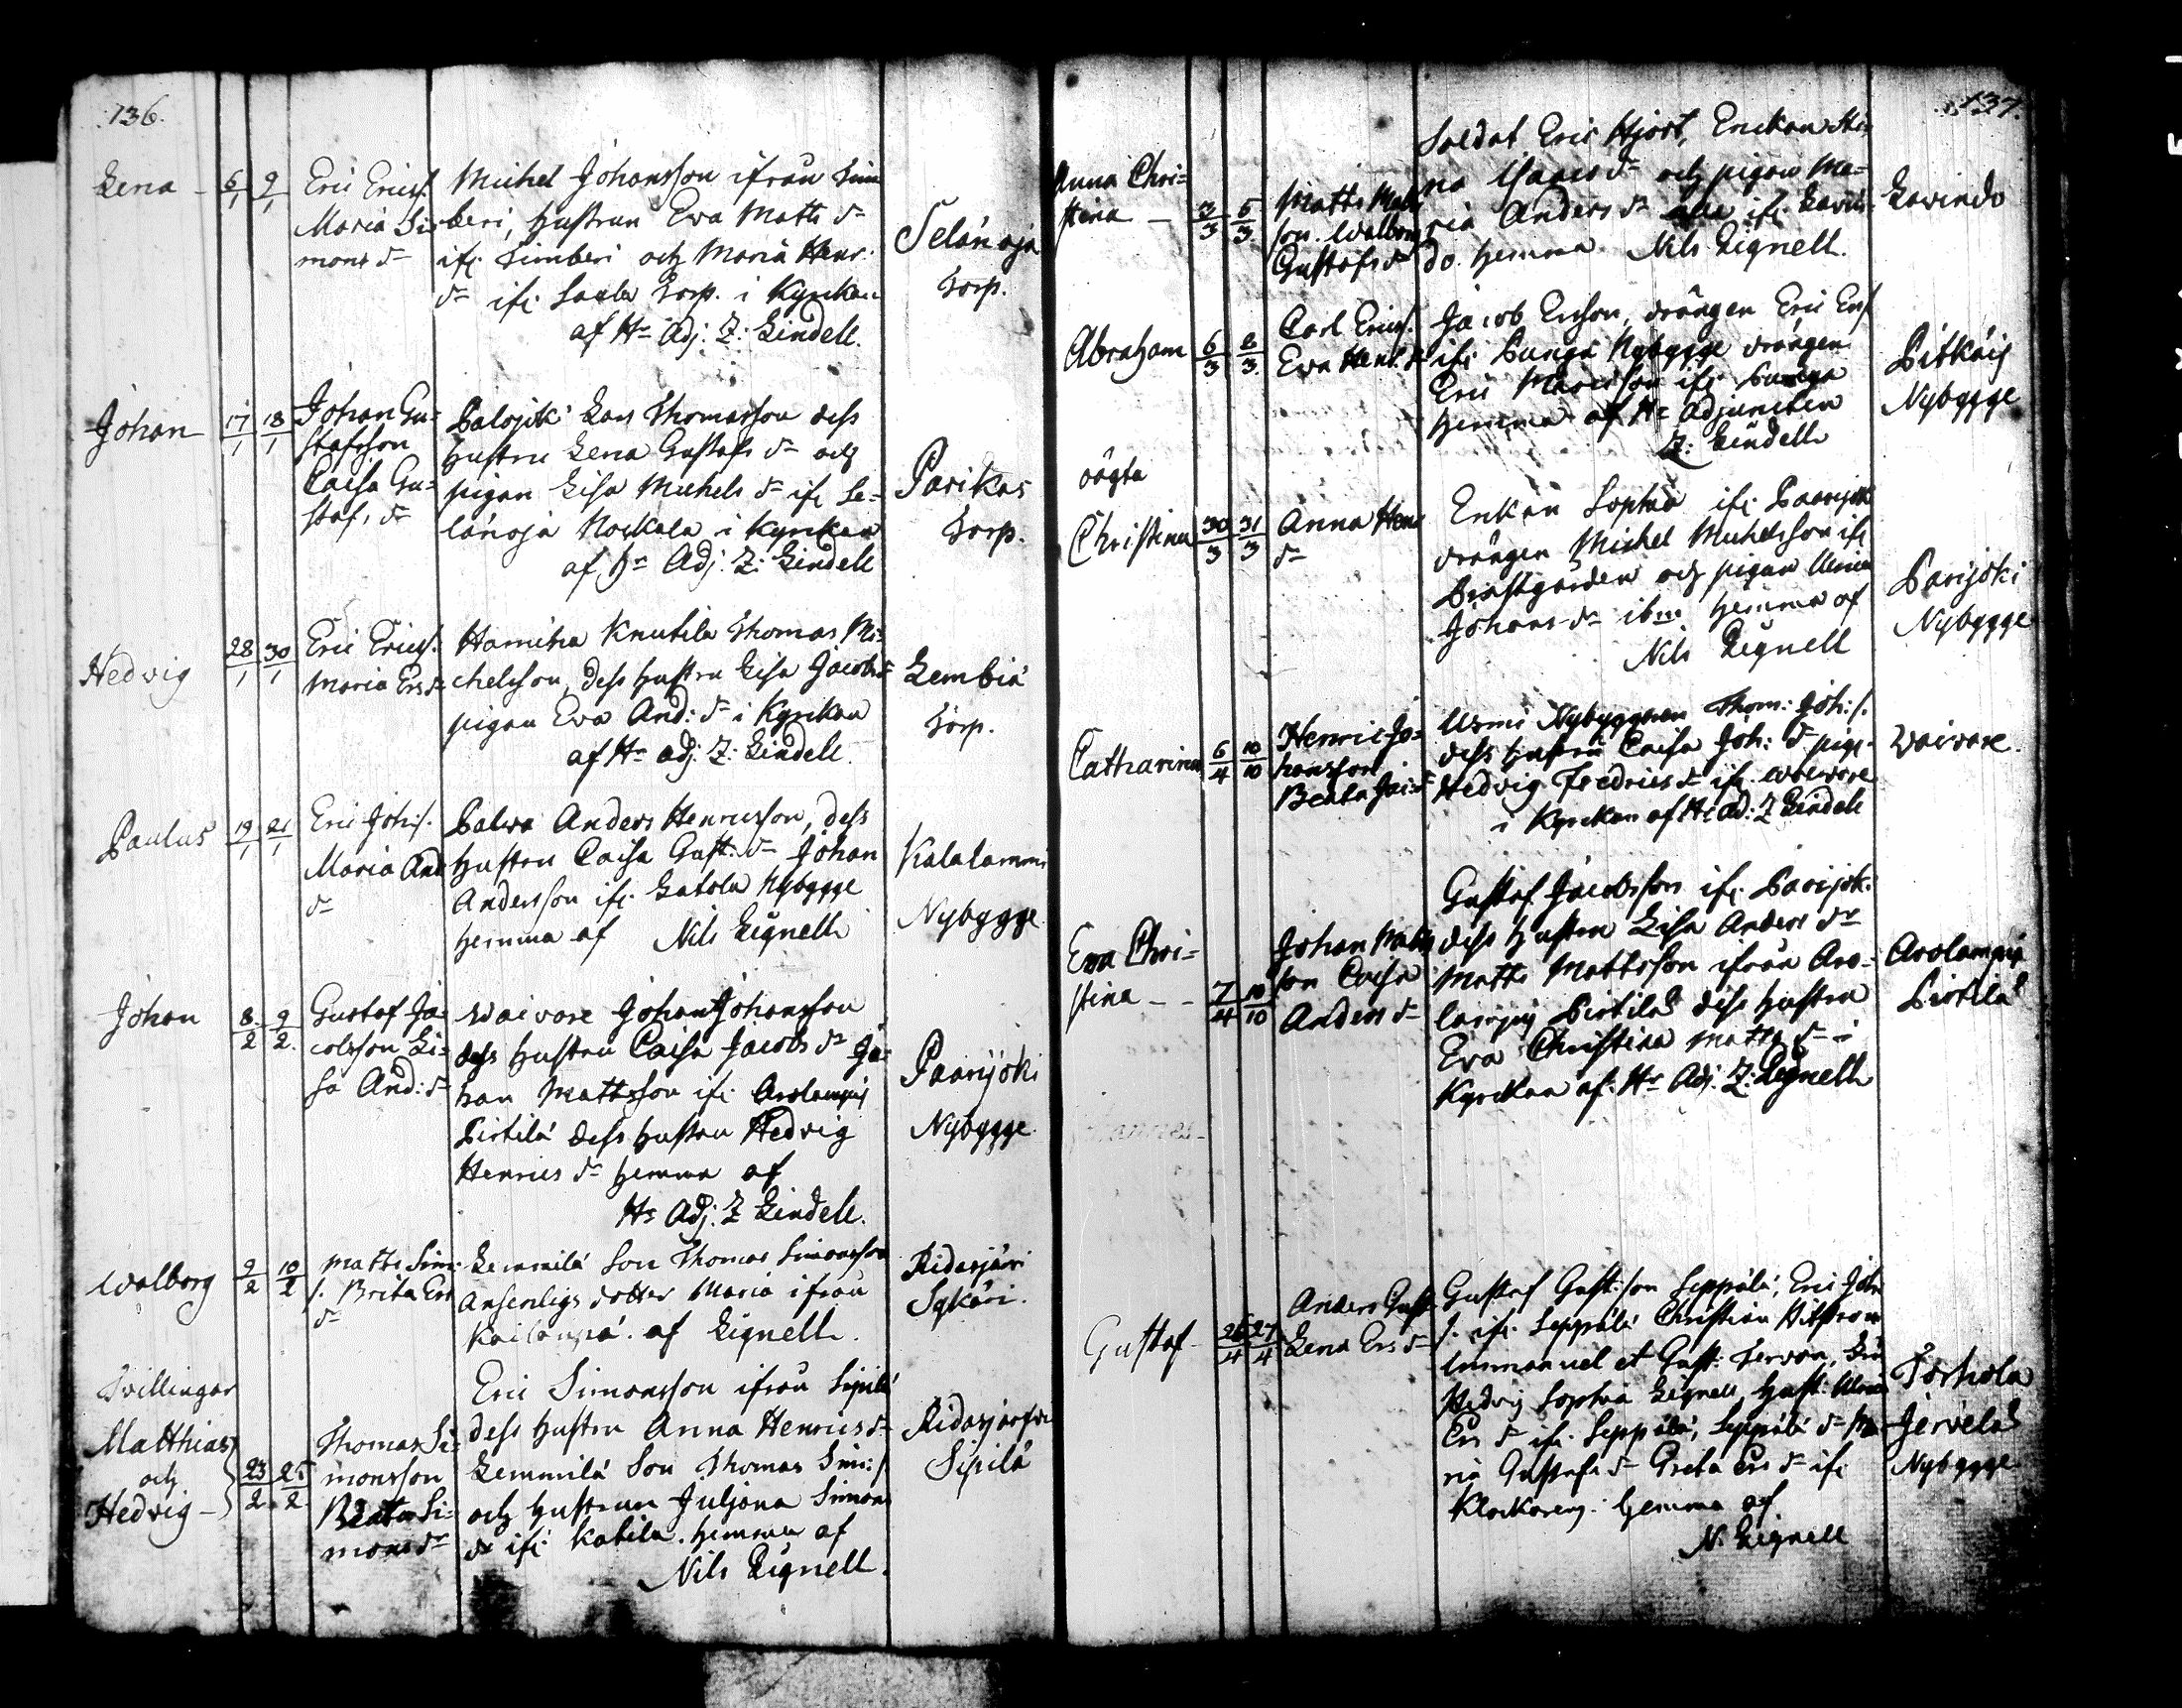 136.
Lena - 6/1 9/1 Eric Ericss.
Maria Si-
mons dr
Michel Johansson ifrån
beri, hustrun Eva Matts dr
ifr. Timberi och Maria Henr:
dr ifr. Torp. i Kyrckan
af Hr Adj: Z: Lindell.
Selänoja
Torp.
Johan 17/1 18/1 Johan Gu-
stafsson
Caisa Gu-
staf. dr
Palojoki Lars Thomasson dess
hustru Lena Gustafs dr och
pigan Lisa Michels dr ifr Se-
länoja Nockala i Kyrckan
af Hr Adj: Z: Lindell
Parikas
Torp.
Hedvig 28/1 30/1 Eric Ericss.
Maria Ers dr
Knutila Thomas Mi-
chelsson, dess hustru Lisa Jacobs dr
pigan Eva And: dr i Kyrckan
af Hr adj: Z: Lindell.
Lembiä
Torp.
Paulus 19/1 21/1 Eric Joh:s.
Maria And
dr
Palwa Anders Henricsson, dess
hustru Caisa Gust: dr Johan
Andersson ifr. Latola Nybygge
hemma af Nils Lignell
Kalalammi
Nybygge
Johan 8/2 9/2 Gustaf Ja-
cobsson Li-
sa And: dr
Waivare Johan Johansson
dess hustru Caisa Jacobs dr Jo-
han Mattsson ifr. Arolampij
Pirtilä dess hustru Hedvig
Henrics dr hemma af
Hr Adj: Z Lindell.
Paarijoki
Nybygge.
Walborg 9/2 10/2 Matts Sim:
s. Brita Ers
dr
Lemmilä Son Thomas Simonsson
dotter Maria ifrån
af Lignell.
Ridasjärvi
Sykäri.
Tvillingar
Matthias
och
Hedvig - 23/2 25/2 Thomas Si-
monsson
Beata Si-
mons dr
Eric Simonsson ifrån Sipilä
dess hustru Anna Henrics dr
Lemmilä Son Thomas Sim:s.
och hustrun Juljana Simons
dr ifr. Katila. hemma af
Nils Lignell.
Ridasjärfvi
Sipilä
137.
Anna Chri-
stina - 3/3 5/3 Matts Matts
son. Walborg
Gustafs dr
Soldat Eric Hjort, Enckan Sti-
na Isaacs dr och pigan Ma-
ria Anders dr alla ifr. Lavin-
do. hemma Nils Lignell.
Lavindo
Abraham 6/3 8/3 Carl Ericss.
Eva Henr. dr
Jacob Ersson, drängen Eric Ers
ifr. Punga Nybygge drängen
Eric ifr. Punga
hemma af Hr Adjuncten
Z: Lindell
Pitkäij
Nybygge
oägta
Christina 30/3 31/3 Anna Henr
dr
Enkan Sophia ifr. Paarijoki
drängen Michel Michelsson ifr
Prästgården och pigan Ulrica
Johans dr ibm. hemma af
Nils Lignell
Parijoki
Nybygge
Catharina 6/4 10/10 Henric Jo-
hansson
Beata Jac: dr
Usmi Nybyggaren Thom: Joh:s.
dess hustru Caisa Joh: dr pig.
Hedvig Fredrics dr ifr. Waivare
i Kyrckan af Hr Ad: Z Lindell
Waivare.
Eva Chri-
stina - - 7/4 10/10 Johan Matts
son Caisa
Anders dr
Gustaf Jacobsson ifr. Parijoki
dess hustru Lisa Anders dr
Matts Mattsson ifrån Aro-
lampij Pirtilä dess hustru
Eva Christina Matts dr i
Kyrckan af. Hr Adj: Z: Lignell
Arolampij
Pirtilä
Gustaf - 26/4 27/4 Anders Gust
Lena Ers dr
Gustaf Gust:son Seppälä, Eric Joh
s. ifr. Seppälä Christian
Immanuel et Gust: Tervon,
Hedvig Sophia Lignell, hust: Ulrica
Ers dr ifr. Seppälä, Seppälä dr Ma
ria Gustafs dr Greta Ers dr ifr
hemma af
N: Lignell
Torhola
Jervelä
Nybygge